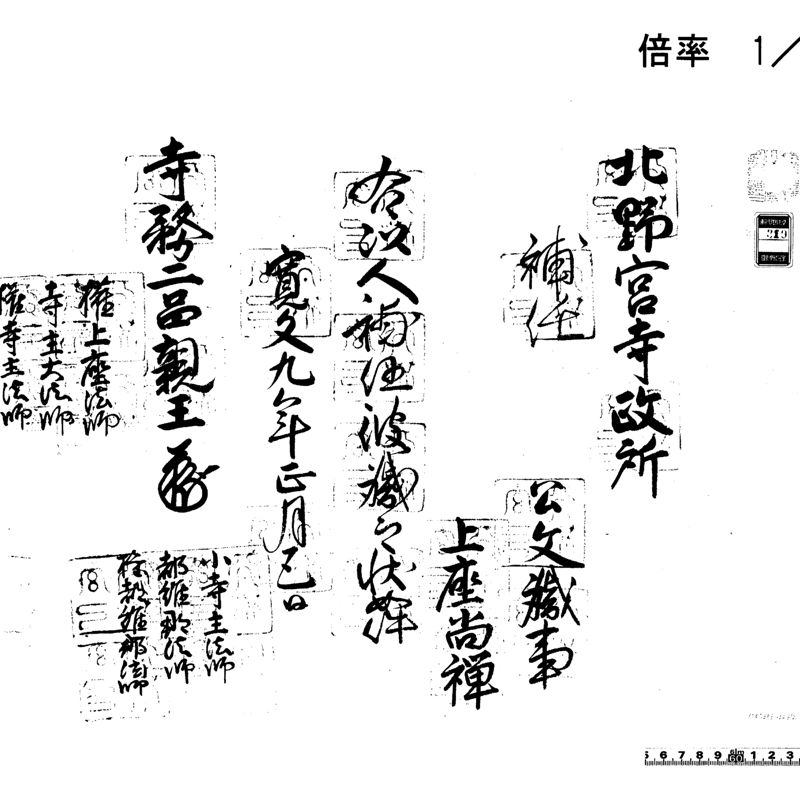 倍率 1/
北野宮寺政所
補任
公文職事
上座尚禅
右以人補任彼職之状如件
寛文九年正月 日
寺務二品親王
権上座法師
寺主大法師
権寺主法師
小寺主法師
都維那法師
権都維那法師
319
5 6 7 8 9 60 1 2 3